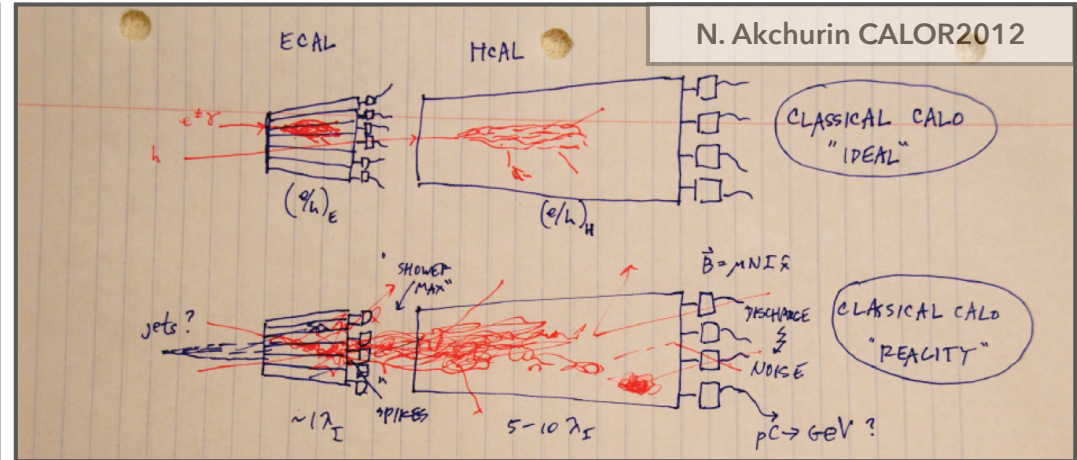 N. Akchurin CALOR2012
ECAL
HCAL
e±γ
h
(e/h)E
(e/h)H
CLASSICAL CALO
"IDEAL"
jets?
"SHOWER
MAX"
B⃗=μNI x̂
DISCHARGE
NOISE
CLASSICAL CALO
"REALITY"
SPIKES
~1λI
5-10 λI
pC→GeV?